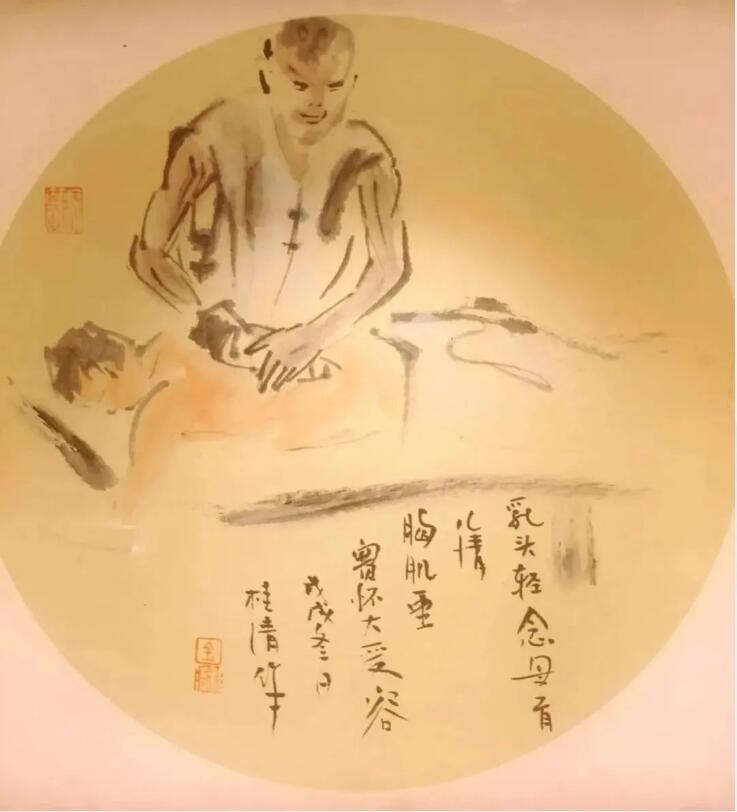 乳头轻念母育
儿情
胸肌重
胷怀大受容
戊戌冬月
桂清作